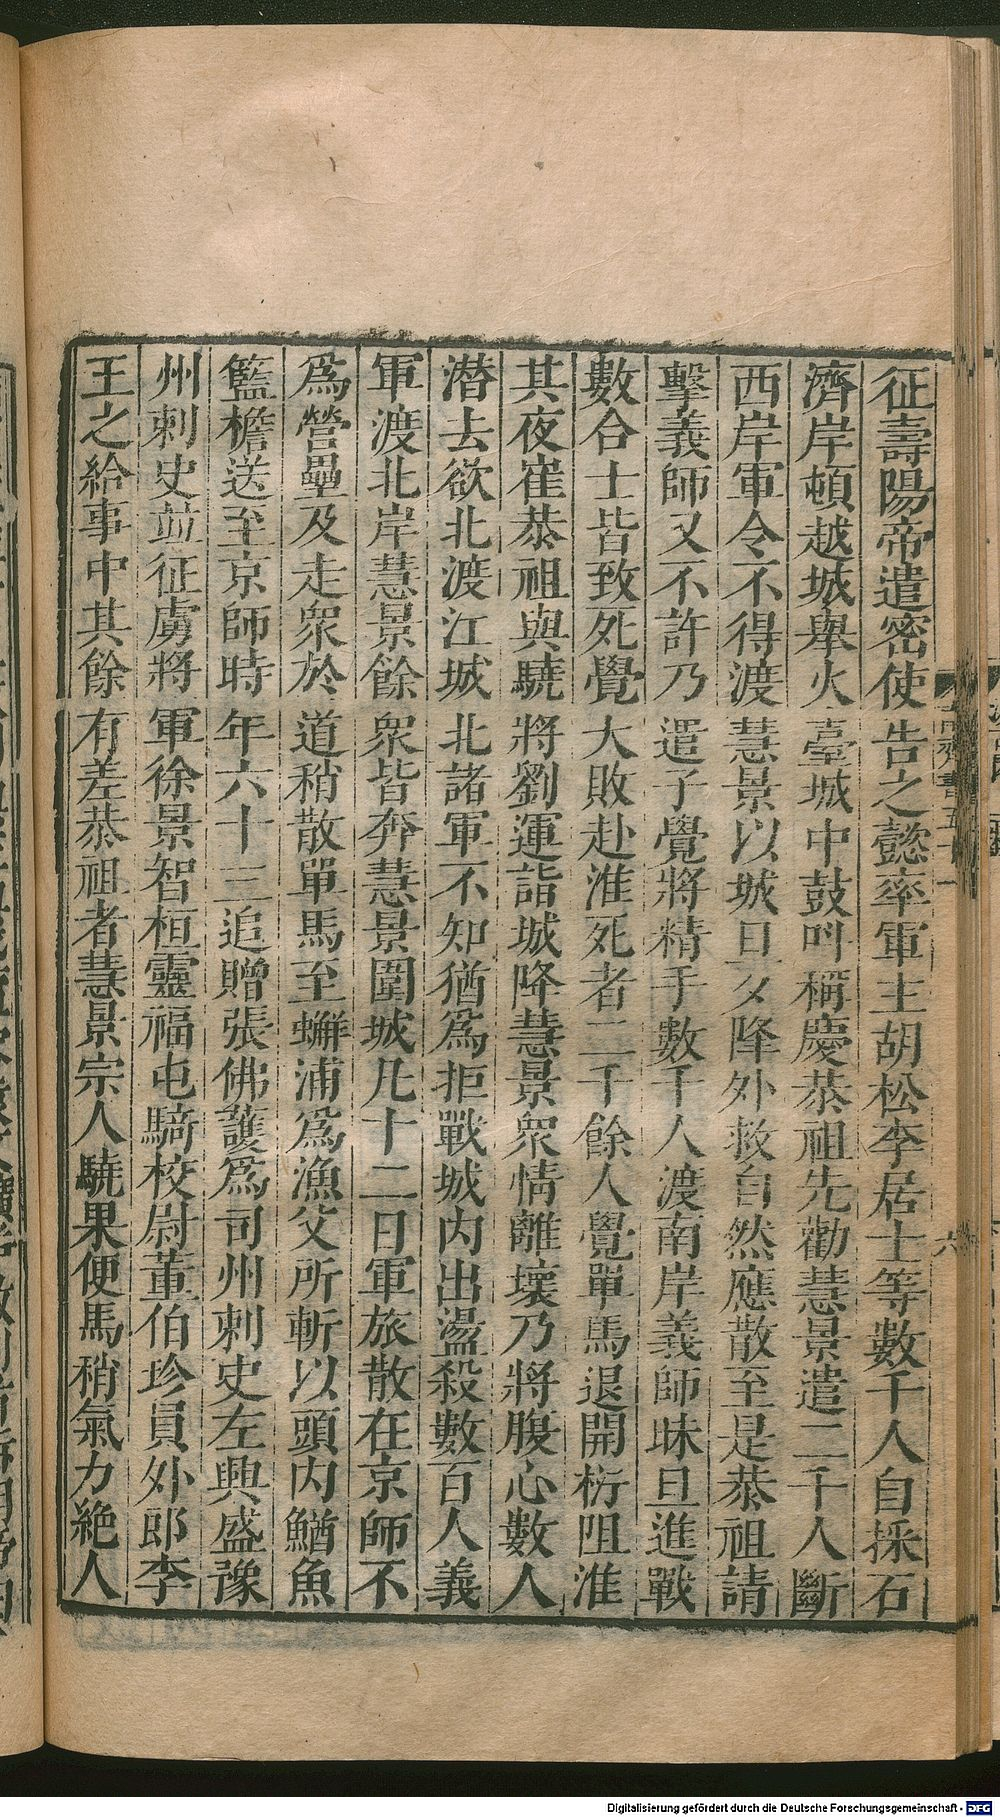 征壽陽帝遣密使告之懿率軍主胡松李居士等數千人自採石
濟岸頓越城舉火臺城中鼓叫稱慶恭祖先勸慧景遣二千人斷
西岸軍令不得渡慧景以城旦夕降外救自然應散至是恭祖請
擊義師又不許乃遣子覺將精手數千人渡南岸義師昧旦進戰
數合士皆致死覺大敗赴淮死者二千餘人覺單馬退開桁阻淮
其夜崔恭祖與驍將劉運詣城降慧景衆情離壞乃將腹心數人
潜去欲北渡江城北諸軍不知猶爲拒戰城内出盪殺數百人義
軍渡北岸慧景餘衆皆奔慧景圍城凡十二日軍旅散在京師不
爲營壘及走衆於道稍散單馬至蠏浦爲漁父所斬以頭内鰌魚
籃檐送至京師時年六十三追贈張佛護爲司州刺史左興盛豫
州刺史並征虜將軍徐景智桓靈福屯騎校尉董伯珍員外郎李
王之給事中其餘有差恭祖者慧景宗人驍果便馬稍氣力絶人
南齊書五十一
六
Digitalisierung gefördert durch die Deutsche Forschungsgemeinschaft - DFG